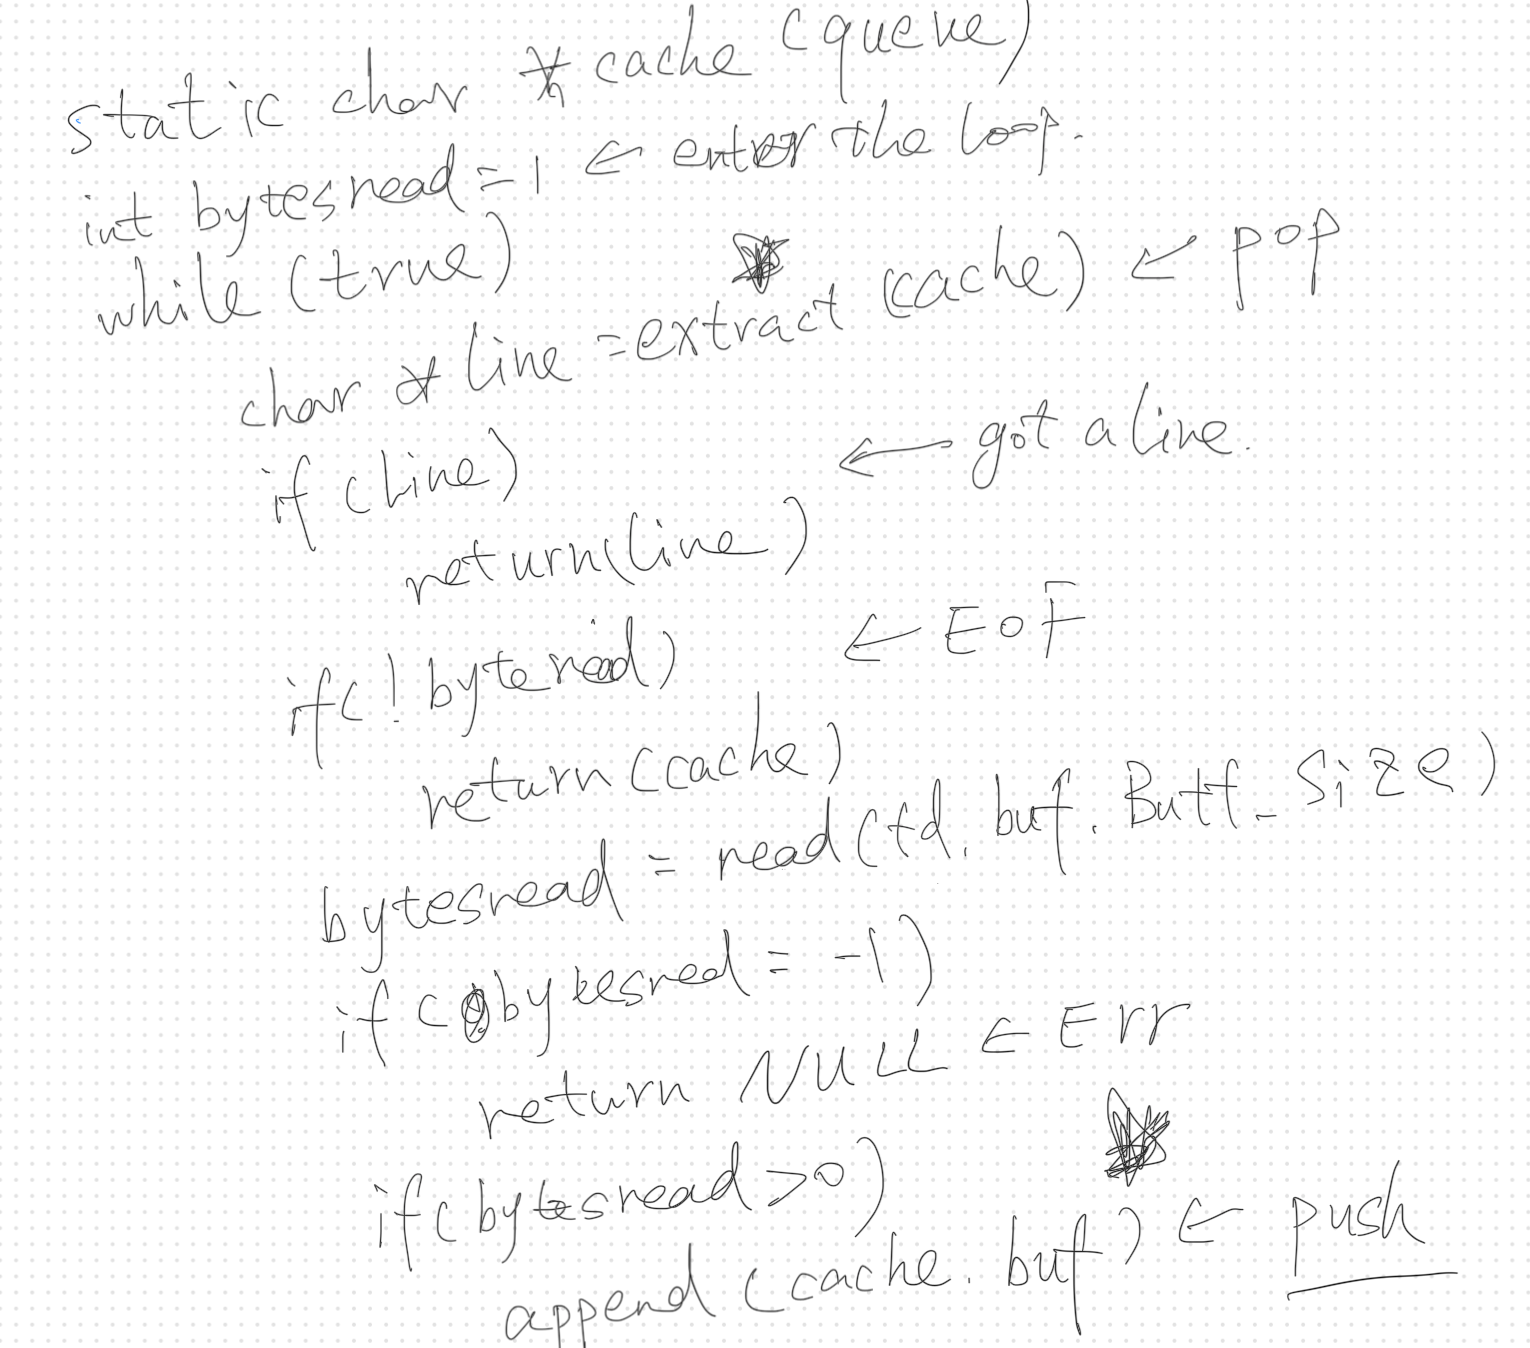 static char * cache (queue)
int bytesread = 1 ← enter the loop.
while (true)
char * line = extract (cache) ← pop
if (line) ← got a line.
return (line)
if (! byteread) ← EOF
return (cache)
bytesread = read (fd, buf, Buff_Size)
if (bytesred = -1)
return NULL ← Err
if (bytesread >0)
append (cache, buf) ← push